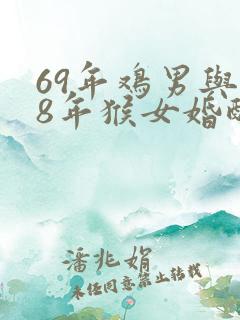 69年鸡男与
8年猴女婚配
潘兆娟
未经同意禁止转载